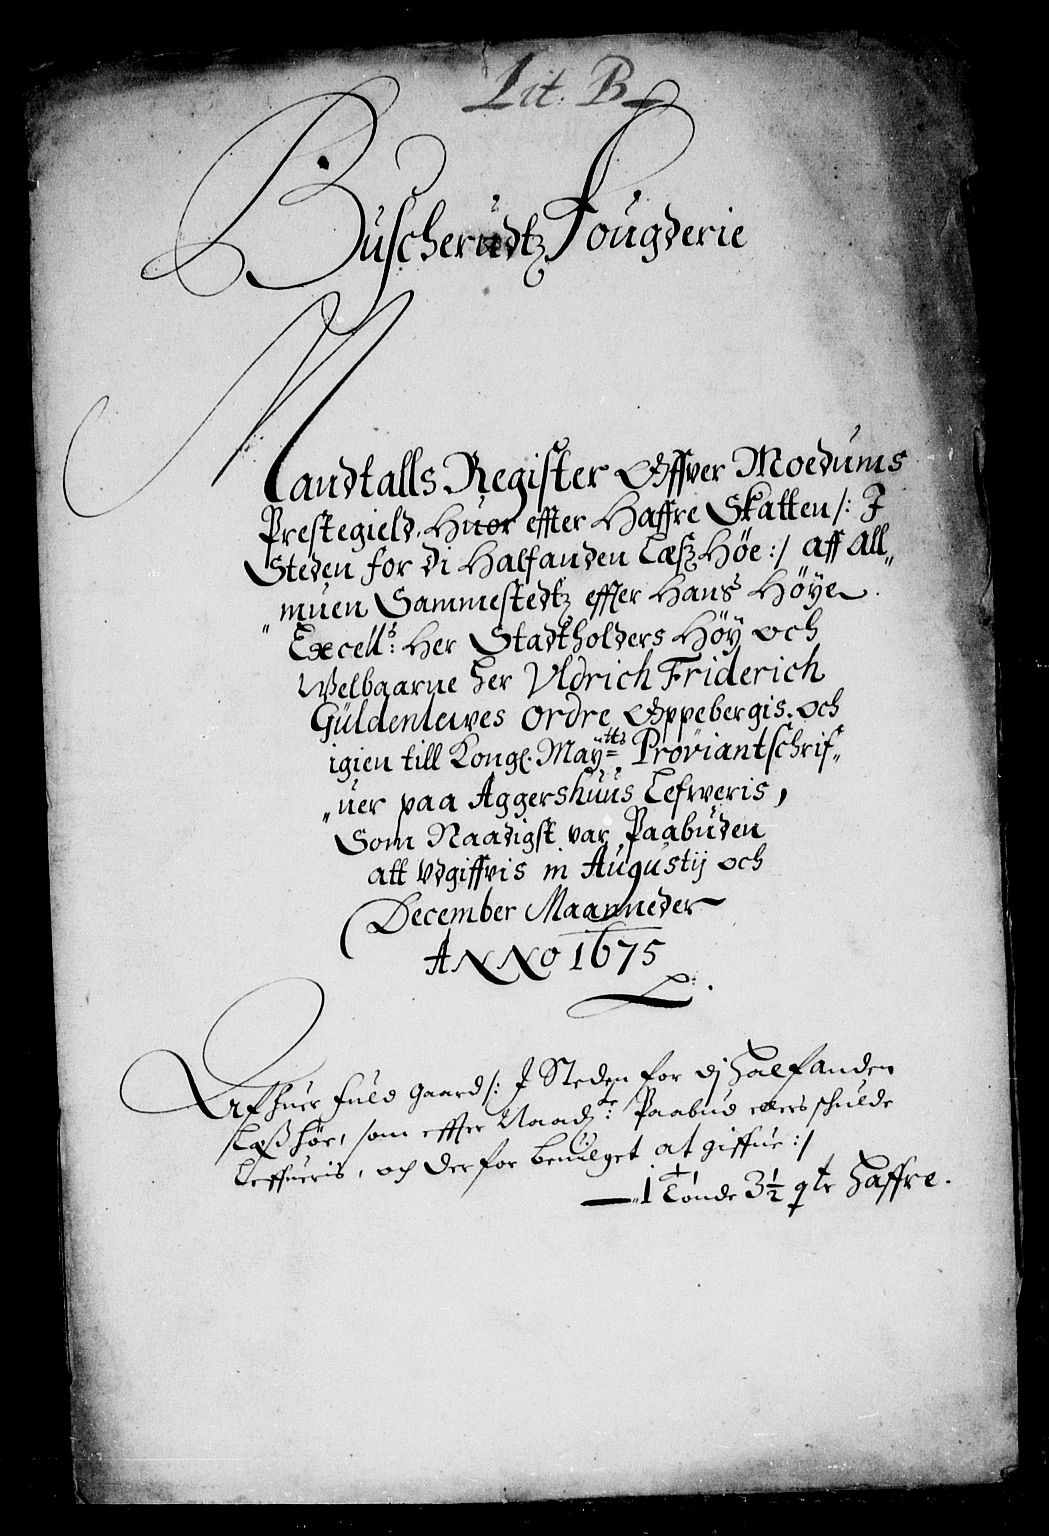 Lit. B
Buscherudtz Fougderie
Mandtalls Register Offver Moedums
Prestegield, Huor effter Haffre Skatten /: J
Steden for di Halfanden Læsz Høe :/ aff All„
„muen Sammestedtz effter Hans Høye
Excells: Her Stadtholders Høy och
Welbaarne her Vldrich Friderich
Güldenlewes Ordre Oppebergis. och
igien till Kongl. Maytts Proviantschrif„
„uer paa Aggershuus Lefweris,
Som Naadigst var Paabuden
att Vdgiffvis in Augustij och
December Maanneder
ANNO 1675
Af huer fuld Gaard /: J Steden for dj Halfanden
Læss høe, som effter Naadste: Paabud ellers schulde
Leffueris, och derfor beuilget at giffue :/
1 Tønde 3½ qtr Haffre.